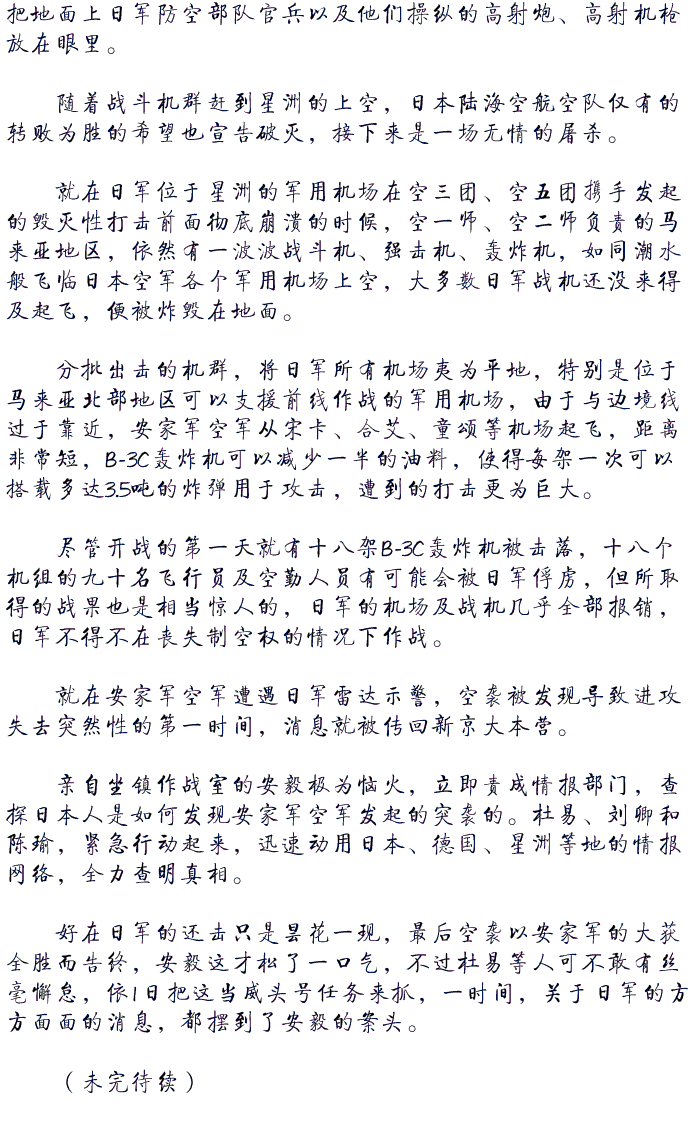 把地面上日军防空部队官兵以及他们操纵的高射炮、高射机枪
放在眼里。
随着战斗机群赶到星洲的上空，日本陆海空航空队仅有的
转败为胜的希望也宣告破灭，接下来是一场无情的屠杀。
就在日军位于星洲的军用机场在空三团、空五团携手发起
的毁灭性打击前面彻底崩溃的时候，空一师、空二师负责的马
来亚地区，依然有一波波战斗机、强击机、轰炸机，如同潮水
般飞临日本空军各个军用机场上空，大多数日军战机还没来得
及起飞，便被炸毁在地面。
分批出击的机群，将日军所有机场夷为平地，特别是位于
马来亚北部地区可以支援前线作战的军用机场，由于与边境线
过于靠近，安家军空军从宋卡、合艾、童颂等机场起飞，距离
非常短，B-3C轰炸机可以减少一半的油料，使得每架一次可以
搭载多达3.5吨的炸弹用于攻击，遭到的打击更为巨大。
尽管开战的第一天就有十八架B-3C轰炸机被击落，十八个
机组的九十名飞行员及空勤人员有可能会被日军俘虏，但所取
得的战果也是相当惊人的，日军的机场及战机几乎全部报销，
日军不得不在丧失制空权的情况下作战。
就在安家军空军遭遇日军雷达示警，空袭被发现导致进攻
失去突然性的第一时间，消息就被传回新京大本营。
亲自坐镇作战室的安毅极为恼火，立即责成情报部门，查
探日本人是如何发现安家军空军发起的突袭的。杜易、刘卿和
陈瑜，紧急行动起来，迅速动用日本、德国、星洲等地的情报
网络，全力查明真相。
好在日军的还击只是昙花一现，最后空袭以安家军的大获
全胜而告终，安毅这才松了一口气，不过杜易等人可不敢有丝
毫懈怠，依1日把这当威头号任务来抓，一时间，关于日军的方
方面面的消息，都摆到了安毅的案头。
（未完待续）